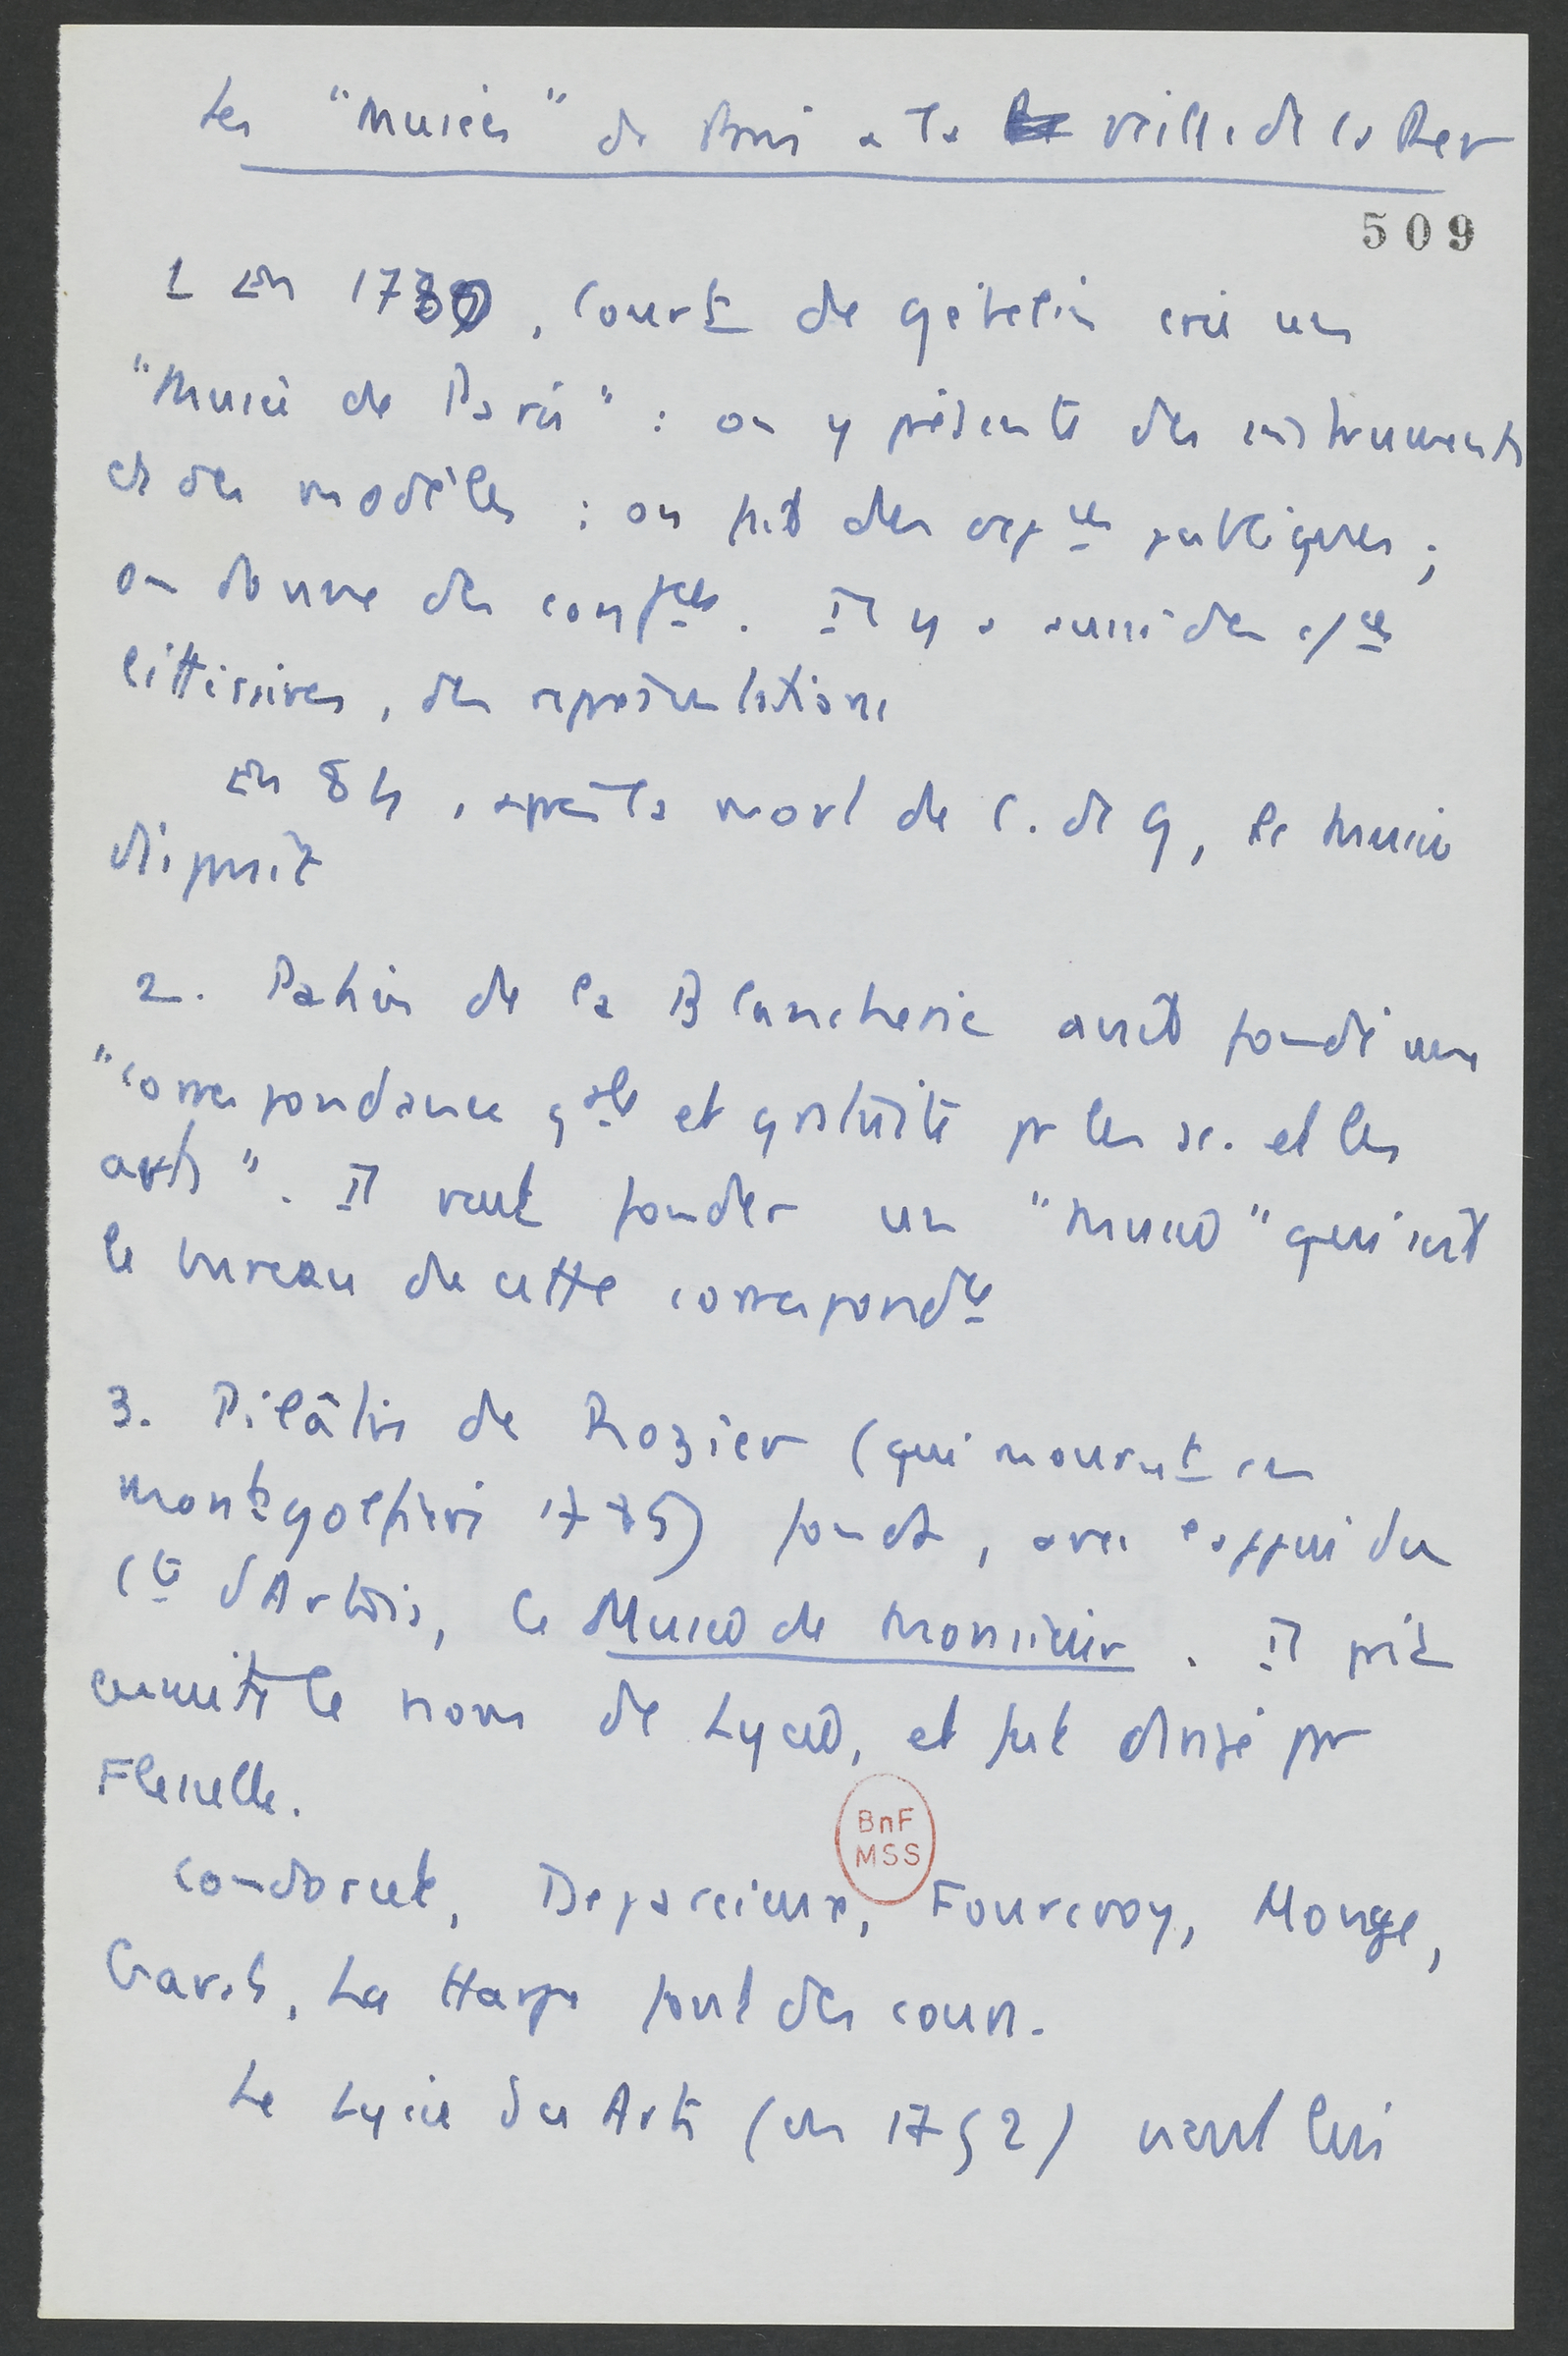 Les "Musées" de Paris à la veille de la Rev
509
1 En 1780, Court de Gébelin crée un
"Musée de Paris" : on y présente des instruments
et des modèles ; on fait des expces publiques ;
on donne des confces. Il y a aussi des
littéraires, des représentations
En 84, après la mort de C. de G, le Musée
disparaît
2. Pahin de la Blancherie avait fondé une
"correspondance gale et gratuite pr les sc. et les
arts". Il veut fonder un "Musée" qui soit
le bureau de cette correspondce
3. Pilâtre de Rozier (qui mourut en
montgolfière 1785) fonde, avec l'appui du
Cte d'Artois, le Musée de Monsieur. Il prit
ensuite le nom de Lycée, et fut dirigé par
Flesselle.
BnF
MSS
Condorcet, Deparcieux, Fourcroy, Monge,
Garat, La Harpe font des cours.
Le Lycée des Arts (en 1792) veut lui